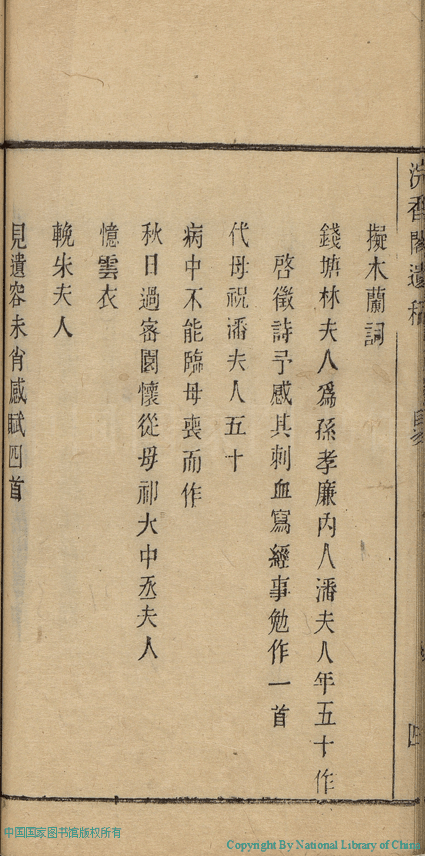 擬木蘭詞
錢塘林夫人爲孫孝廉內人潘夫人年五十作
啓徵詩予感其刺血寫經事勉作一首
代母祝潘夫人五十
病中不能臨母喪而作
秋日過密園懷從母祁大中丞夫人
憶雲衣
輓朱夫人
見遺容未肖感賦四首
中国国家图书馆版权所有
Copyright By National Library of China